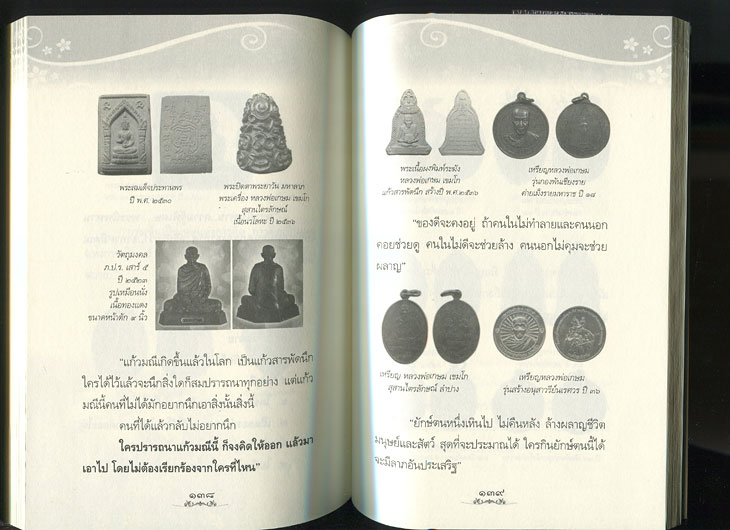 พระสมเด็จประทานพร
ปี พ.ศ. ๒๕๓๐
พระปิดตาพระยาวัน มหาลาภ
พระเครื่อง หลวงพ่อเกษม เขมโก
สุสานไตรลักษณ์
เนื้อนวโลหะ ปี ๒๕๓๖
วัตถุมงคล
ภ.ป.ร. เสาร์ ๕
ปี ๒๕๒๓
รูปเหมือนนั่ง
เนื้อทองแดง
ขนาดหน้าตัก ๙ นิ้ว
"แก้วมณีเกิดขึ้นแล้วในโลก เป็นแก้วสารพัดนึก
ใครได้ไว้แล้วจะนึกสิ่งใดก็สมปรารถนาทุกอย่าง แต่แก้ว
มณีนี้คนที่ไม่ได้มักอยากนึกเอาสิ่งนั้นสิ่งนี้
คนที่ได้แล้วกลับไม่อยากนึก
ใครปรารถนาแก้วมณีนี้ ก็จงคิดให้ออก แล้วมา
เอาไป โดยไม่ต้องเรียกร้องจากใครที่ไหน"
๑๓๘
พระเนื้อผงพิมพ์ระฆัง
หลวงพ่อเกษม เขมโก
แก้วสารพัดนึก สร้างปี พ.ศ.๒๕๓๖
เหรียญหลวงพ่อเกษม
รุ่นกองพันเชียงราย
ค่ายเม็งรายมหาราช ปี ๑๘
"ของดีจะคงอยู่ ถ้าคนในไม่ทำลายและคนนอก
คอยช่วยดู คนในไม่ดีจะช่วยล้าง คนนอกไม่คุมจะช่วย
ผลาญ"
เหรียญ หลวงพ่อเกษม เขมโก
สุสานไตรลักษณ์ ลำปาง
เหรียญหลวงพ่อเกษม
รุ่นสร้างอนุสาวรีย์นเรศวร ปี ๓๖
"ยักษ์ตนหนึ่งเดินไป ไม่คืนหลัง ล้างผลาญชีวิต
มนุษย์และสัตว์ สุดที่จะประมาณได้ ใครกินยักษ์ตนนี้ได้
จะมีลาภอันประเสริฐ"
๑๓๙